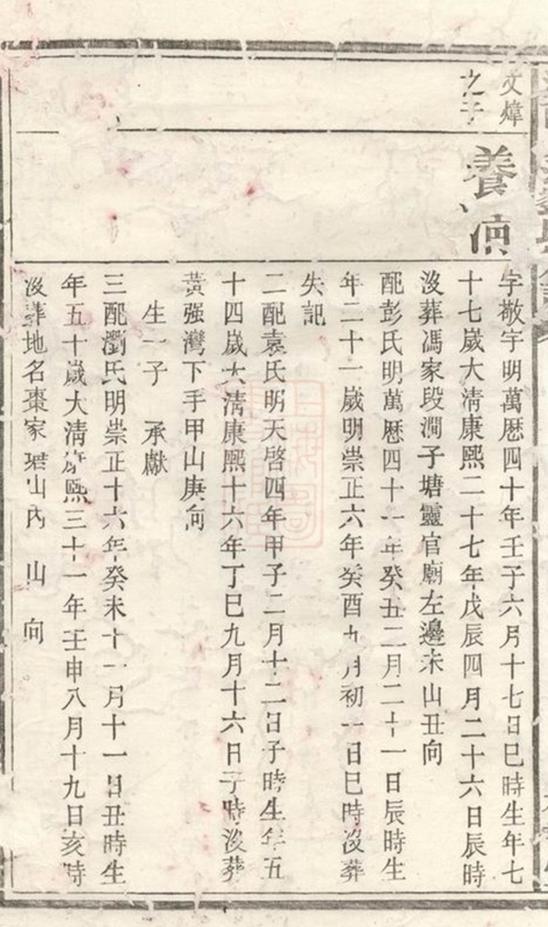 文煒
之子
養源
字敬宇明萬厯四十年壬子六月十七日巳時生年七
十七歲大清康熙二十七年戊辰四月二十六日辰時
沒葬馮家段澗子塘靈官廟左邊未山丑向
配彭氏明萬厯四十一年癸丑二月二十一日辰時生
年二十一歲明崇正六年癸酉九月初一日巳時沒葬
失記
二配袁氏明天啓四年甲子二月十二日子時生年五
十四歲大清康熙十六年丁巳九月十六日子時沒葬
黃强灣下手甲山庚向
生一子　承獻
三配劉氏明崇正十六年癸未十一月十一日丑時生
年五十歲大清康熙三十一年壬申八月十九日亥時
沒葬地名棗家山內　山　向